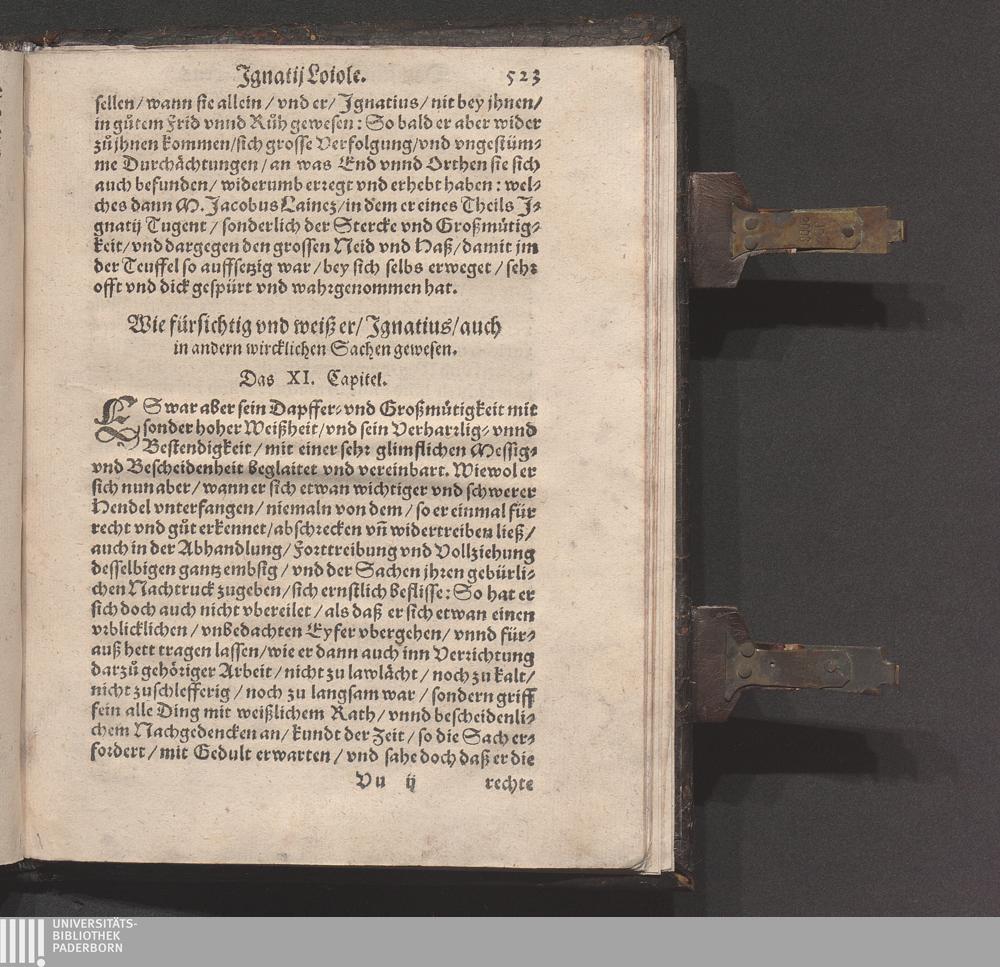 Ignatij Loiole. 523
sellen / wann sie allein / vnd er / Ignatius / nit bey jhnen /
in gůtem Frid vnnd Růh gewesen : So bald er aber wider
zů jhnen kommen / sich grosse Verfolgung / vnd vngestüm⸗
me Durchächtungen / an was End vnnd Orthen sie sich
auch befunden / widerumb erregt vnd erhebt haben : wel⸗
ches dann M. Jacobus Lainez / in dem er eines Theils J⸗
gnatij Tugent / sonderlich der Stercke vnd Großmütig⸗
keit / vnd dargegen den grossen Neid vnd Haß / damit jm
der Teuffel so auffsetzig war / bey sich selbs erweget / sehr
offt vnd dick gespürt vnd wahrgenommen hat.
Wie fürsichtig vnd weiß er / Ignatius / auch
in andern wircklichen Sachen gewesen.
Das XI. Capitel.
ES war aber sein Dapffer⸗ vnd Großmütigkeit mit
sonder hoher Weißheit / vnd sein Verharrlig⸗ vnnd
Bestendigkeit / mit einer sehr glimflichen Messig⸗
vnd Bescheidenheit beglaitet vnd vereinbart. Wiewol er
sich nun aber / wann er sich etwan wichtiger vnd schwerer
Hendel vnterfangen / niemaln von dem / so er einmal für
recht vnd gůt erkennet / abschrecken vñ widertreiben ließ /
auch in der Abhandlung / Forttreibung vnd Vollziehung
desselbigen gantz embsig / vnd der Sachen jhren gebürli⸗
chen Nachtruck zugeben / sich ernstlich beflisse : So hat er
sich doch auch nicht vbereilet / als daß er sich etwan einen
vrblicklichen / vnbedachten Eyfer vbergehen / vnnd für⸗
auß hett tragen lassen / wie er dann auch inn Verrichtung
darzů gehöriger Arbeit / nicht zu lawlächt / noch zu kalt /
nicht zu schlefferig / noch zu langsam war / sondern griff
fein alle Ding mit weißlichem Rath / vnnd bescheidenli⸗
chem Nachgedencken an / kundt der Zeit / so die Sach er⸗
fordert / mit Gedult erwarten / vnd sahe doch daß er die
Vu ij rechte
UNIVERSITÄTS-
BIBLIOTHEK
PADERBORN